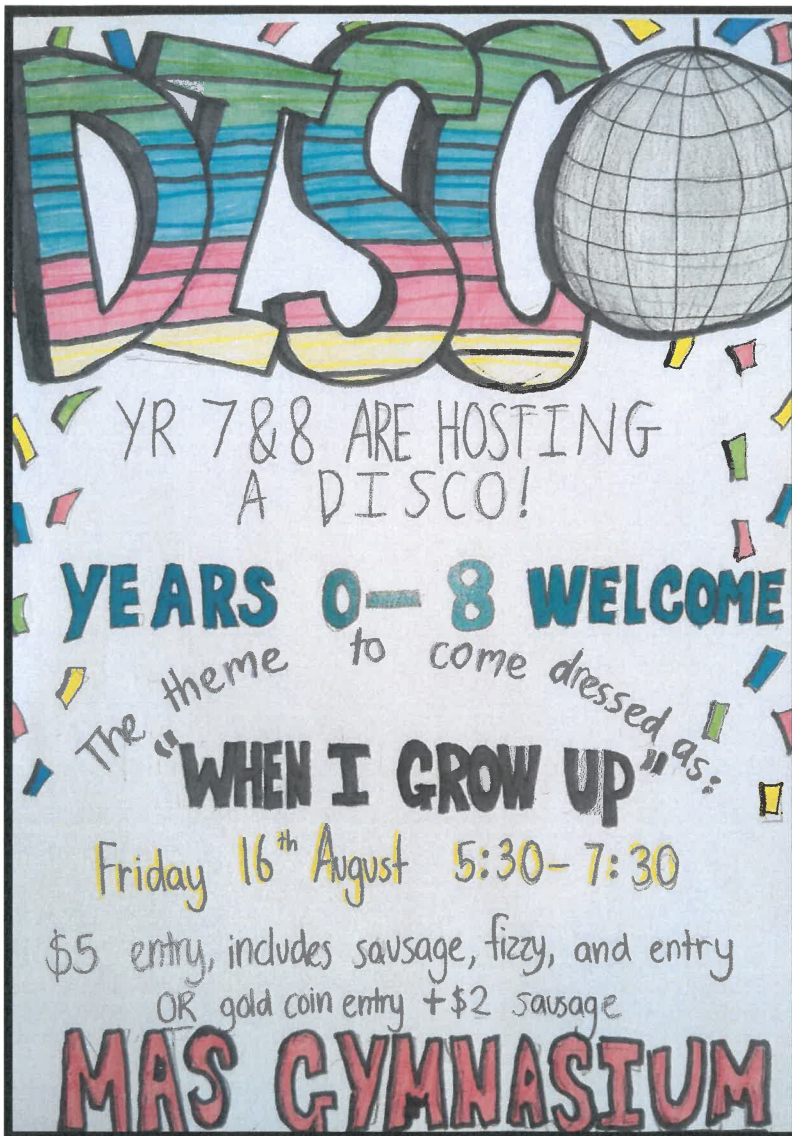 DISCO
YR 7&8 ARE HOSTING
A DISCO!
YEARS 0-8 WELCOME
The theme to come dressed as:
"WHEN I GROW UP"
Friday 16th August 5:30-7:30
$5 entry, includes sausage, fizzy, and entry
OR gold coin entry +$2 sausage
MAS GYMNASIUM